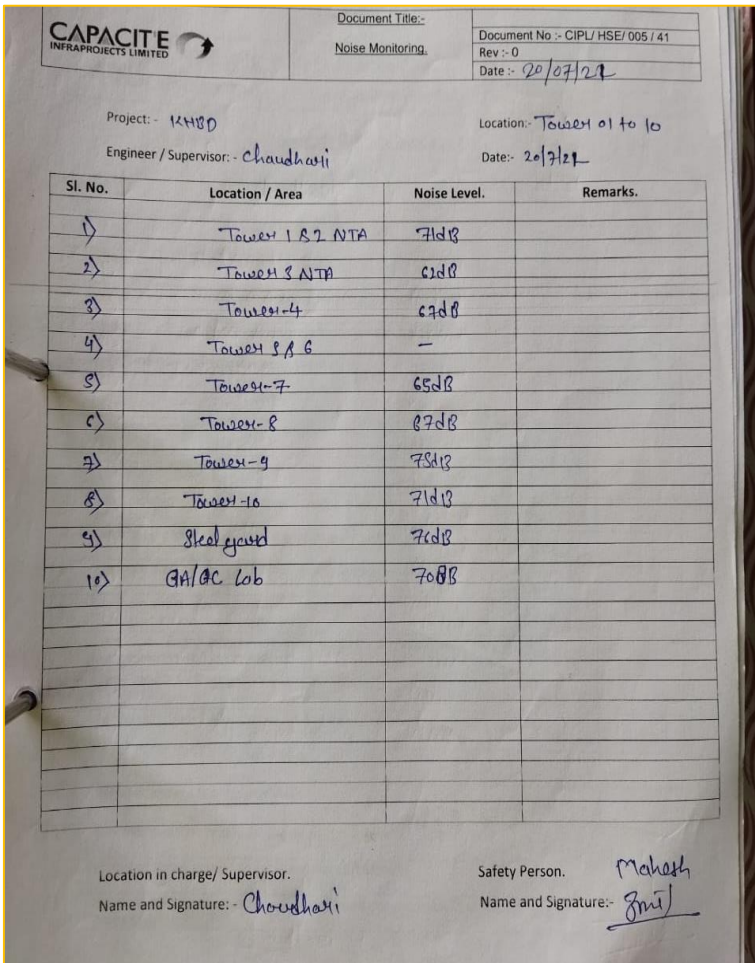 CAPACIT'E
INFRAPROJECTS LIMITED
Document Title:-
Noise Monitoring.
Document No :- CIPL/ HSE/ 005 / 41
Rev :- 0
Date :- 20/07/21
Project: - KHBD
Location:- Tower 01 to 10
Engineer / Supervisor: - Chaudhari
Date:- 20/7/21
Sl. No. Location / Area Noise Level. Remarks.
1) Tower 1 & 2 NTA 71dB
2) Tower 3 NTA 62dB
3) Tower-4 67dB
4) Tower 5 & 6 –
5) Tower-7 65dB
6) Tower-8 67dB
7) Tower-9 75dB
8) Tower-10 71dB
9) Steel yard 76dB
10) QA/QC Lab 70dB
Location in charge/ Supervisor.
Safety Person. Mahesh
Name and Signature: - Choudhari
Name and Signature:-